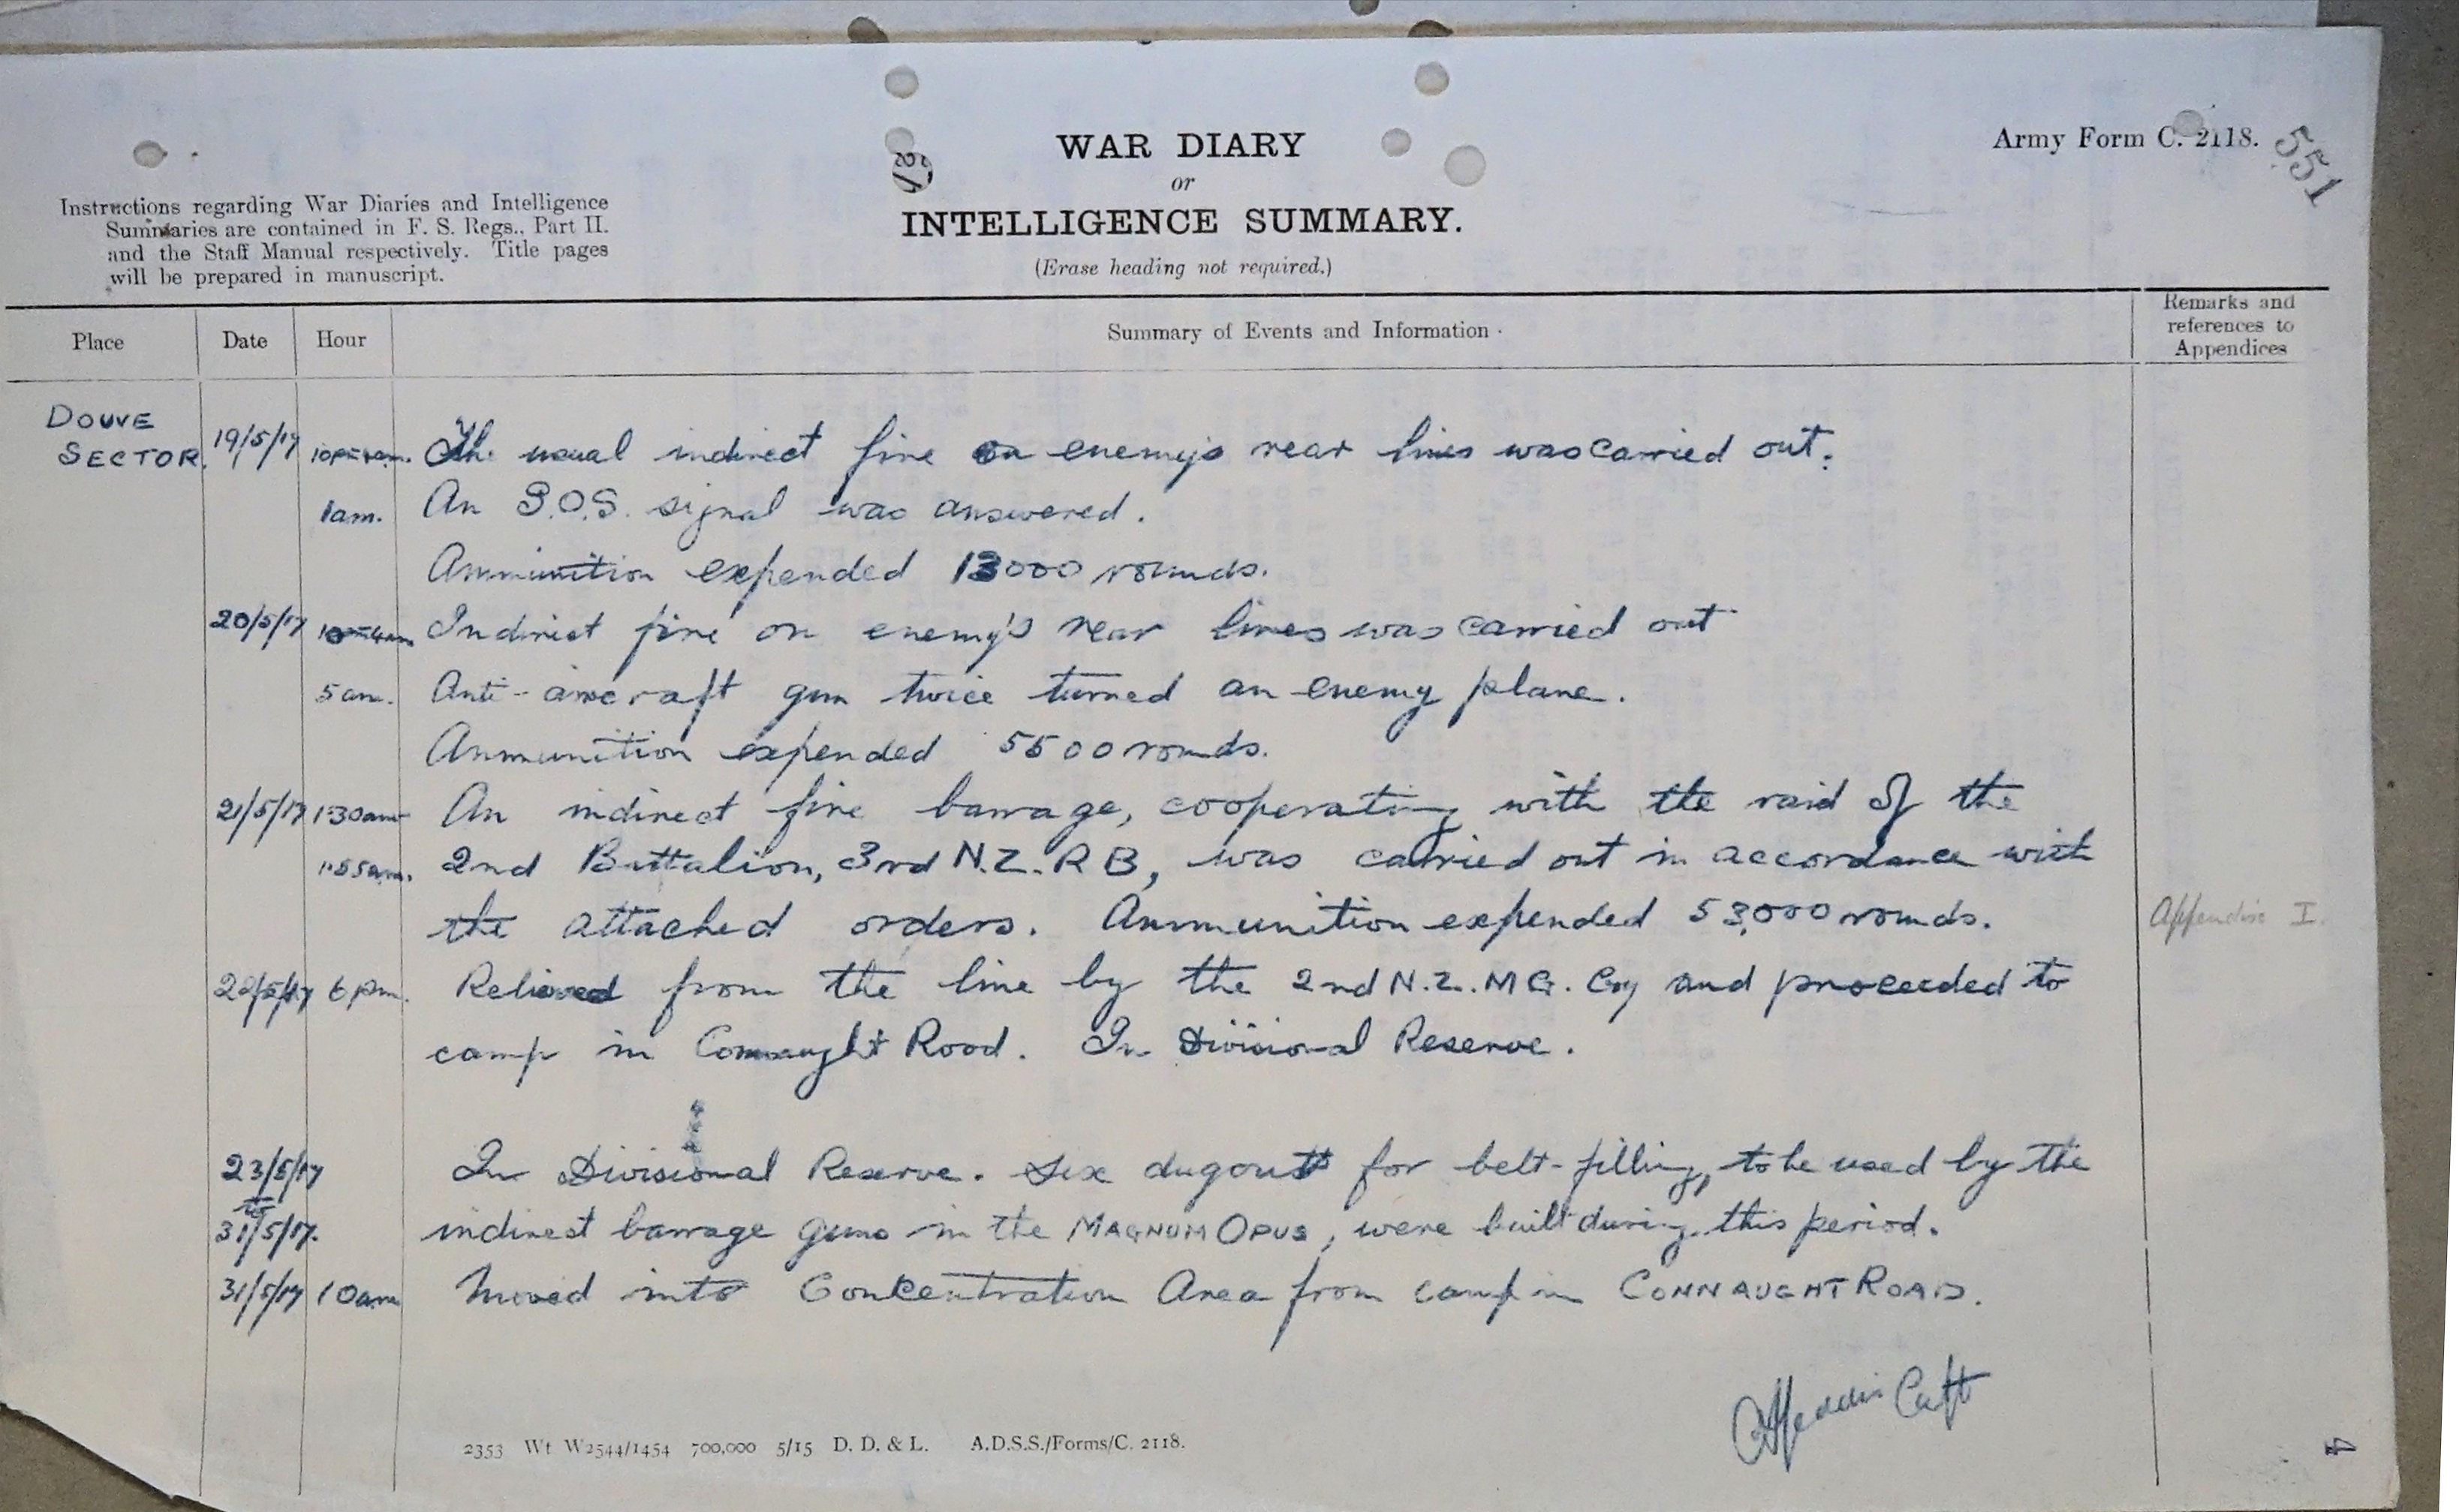 WAR DIARY
or
INTELLIGENCE SUMMARY.
(Erase heading not required.)
Army Form C. 2118.
551
Instructions regarding War Diaries and Intelligence
Summaries are contained in F. S. Regs., Part II.
and the Staff Manual respectively. Title pages
will be prepared in manuscript.
Place Date Hour Summary of Events and Information Remarks and
references to
Appendices
DOUVE
SECTOR. 19/5/17 The usual indirect fire on enemy's rear lines was carried out.
1am. An S.O.S. signal was answered.
Ammunition expended 13000 rounds.
20/5/17 Indirect fire on enemy's rear lines was carried out
5am. Anti-aircraft gun twice turned an enemy plane.
Ammunition expended 5500 rounds.
21/5/17 1·30am An indirect fire barrage, cooperating with the raid of the
1·55am. 2nd Battalion, 3rd N.Z.R B, was carried out in accordance with
the attached orders. Ammunition expended 53,000 rounds. Appendix I.
22/5/17 6pm. Relieved from the line by the 2nd N.Z. M G. Coy and proceeded to
camp in Connaught Road. In Divisional Reserve.
23/5/17 In Divisional Reserve. Six dugouts for belt-filling, to be used by the
to
31/5/17. indirect barrage guns in the MAGNUM OPUS, were built during this period.
31/5/17 10am Moved into Concentration Area from camp in CONNAUGHT ROAD.
Capt
2353 Wt W2544/1454 700,000 5/15 D. D. & L. A.D.S.S./Forms/C. 2118.
4